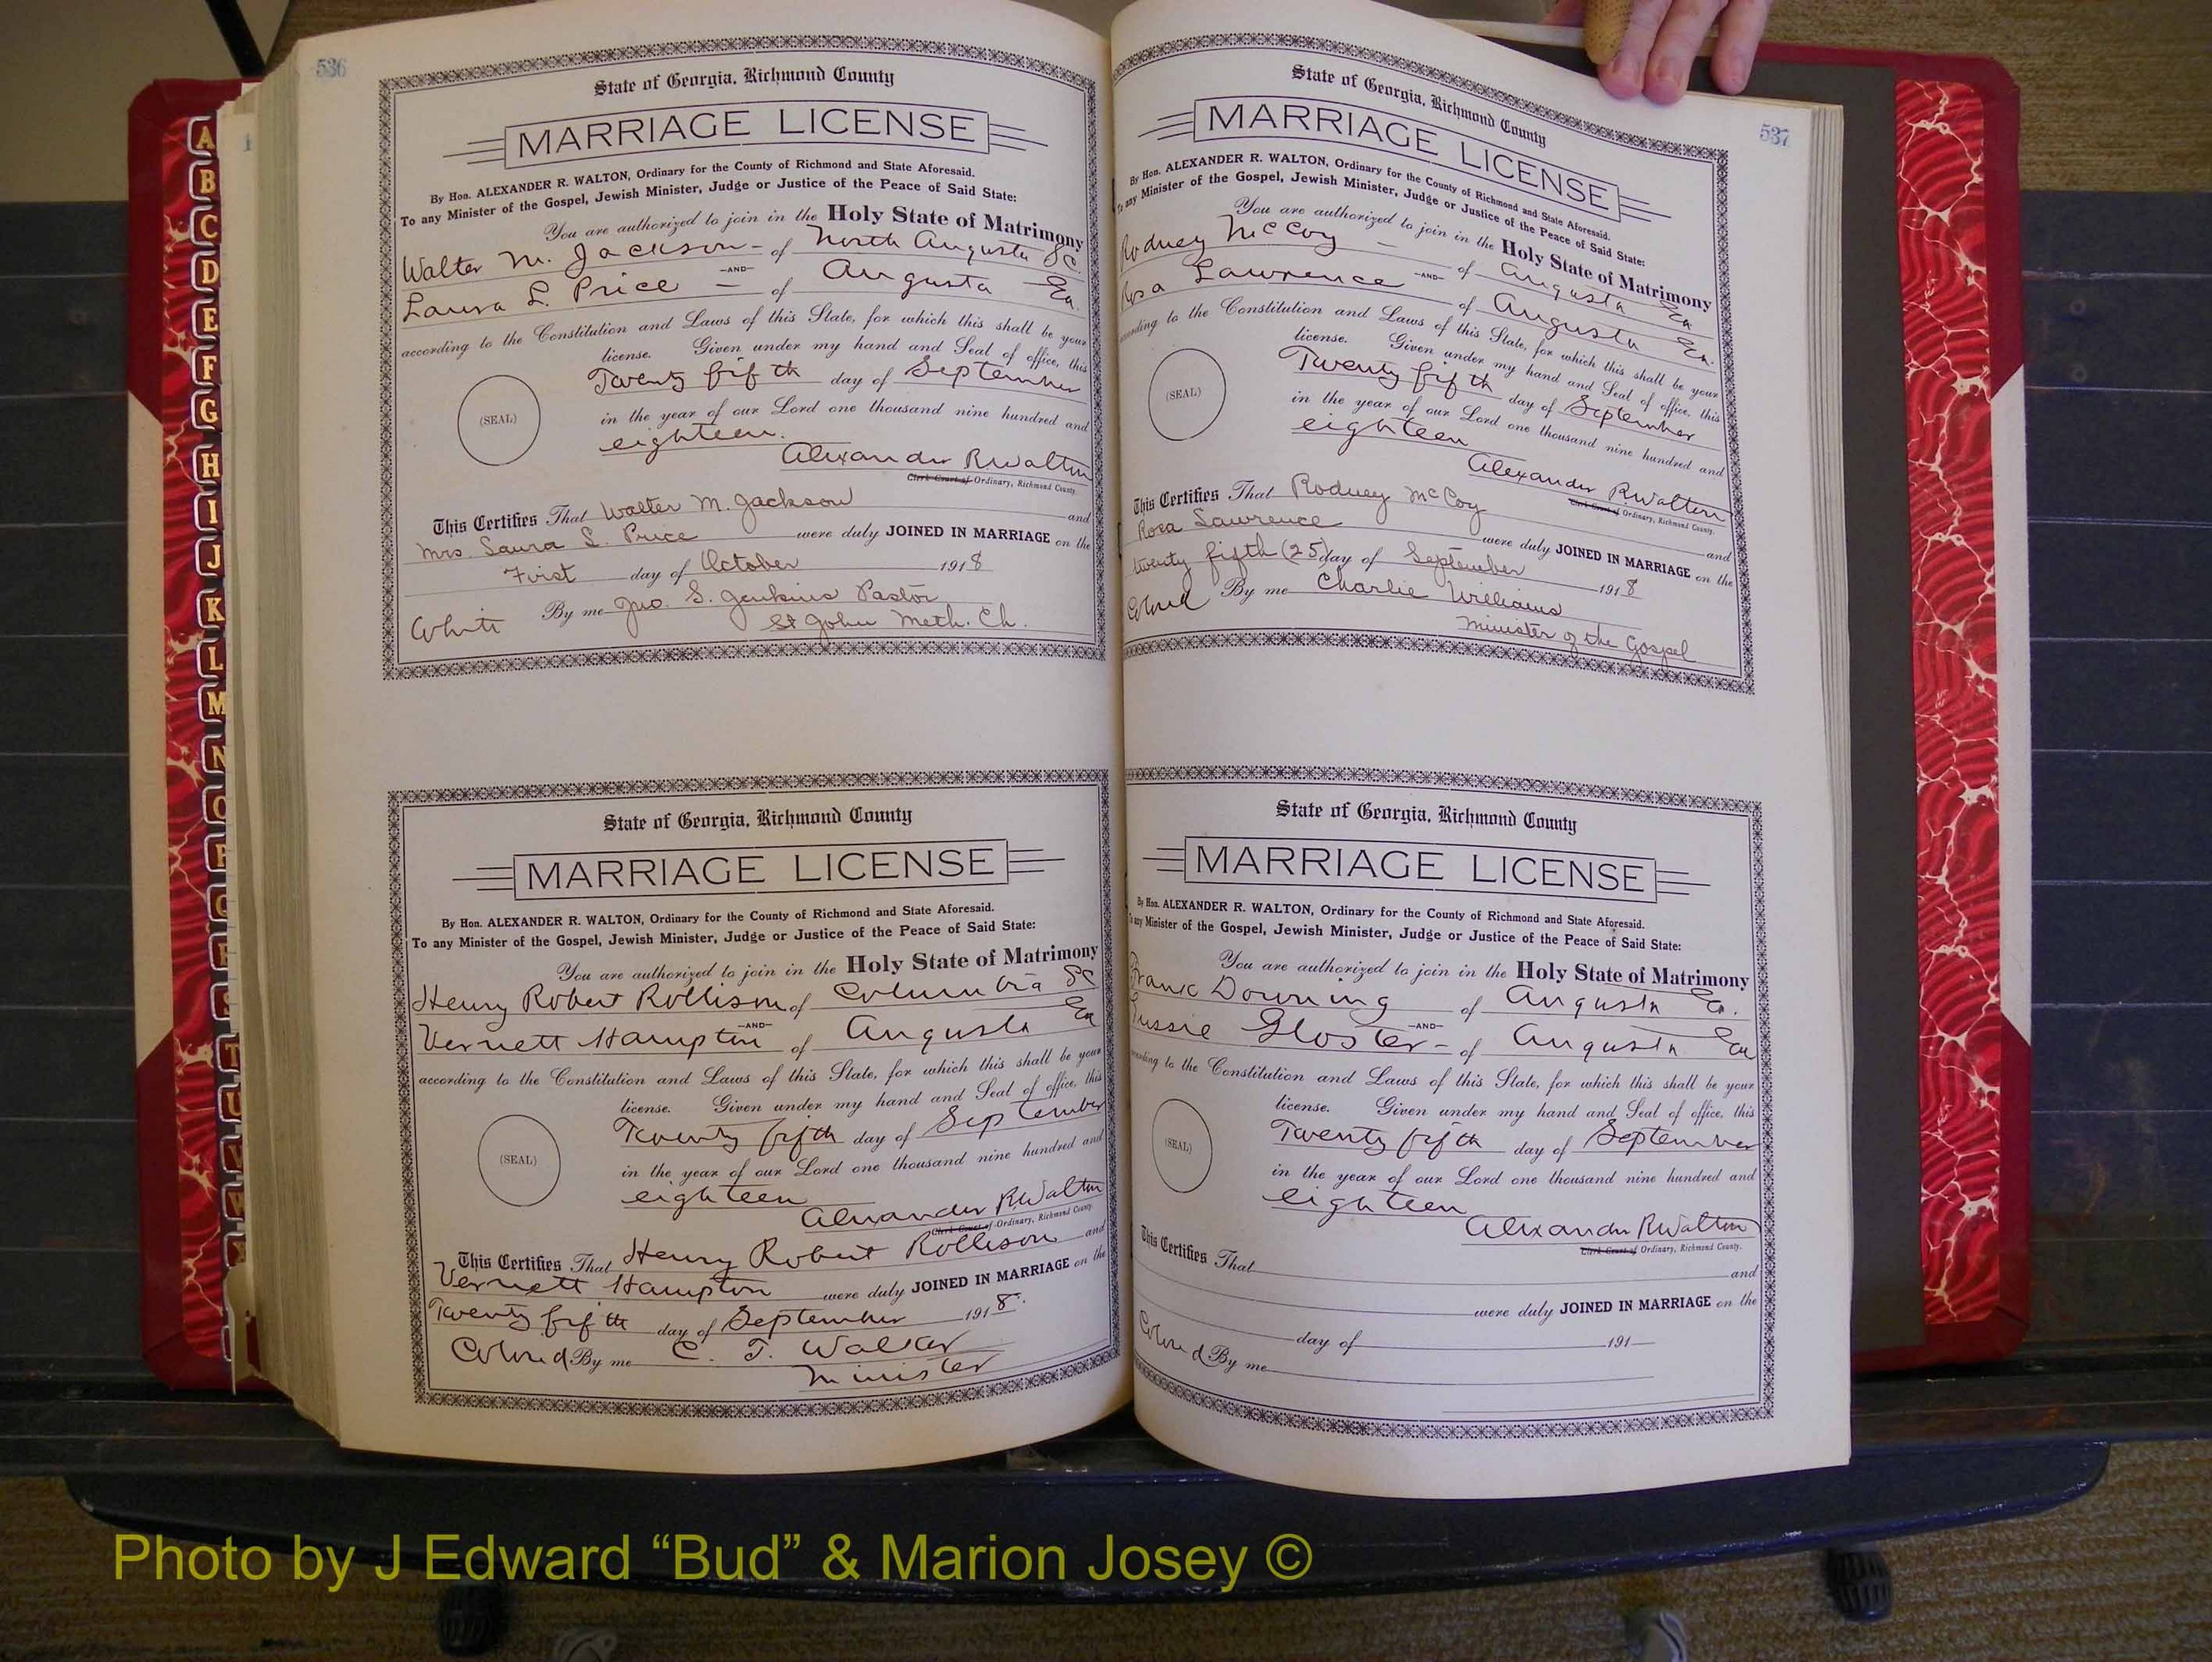 536
State of Georgia, Richmond County
MARRIAGE LICENSE
By Hon. ALEXANDER R. WALTON, Ordinary for the County of Richmond and State Aforesaid.
To any Minister of the Gospel, Jewish Minister, Judge or Justice of the Peace of Said State:
You are authorized to join in the Holy State of Matrimony
Walter M. Jackson - of North Augusta SC.
-AND-
Laura L. Price - of Augusta Ga.
according to the Constitution and Laws of this State, for which this shall be your
license. Given under my hand and Seal of office, this
Twenty fifth day of September
(SEAL)
in the year of our Lord one thousand nine hundred and
eighteen.
Alexander R Walton
Clerk Court of Ordinary, Richmond County.
This Certifies That Walter M. Jackson and
Mrs. Laura L. Price were duly JOINED IN MARRIAGE on the
First day of October 1918
White By me Jno. S. Jenkins Pastor
St John Meth. Ch.
State of Georgia, Richmond County
MARRIAGE LICENSE
By Hon. ALEXANDER R. WALTON, Ordinary for the County of Richmond and State Aforesaid.
To any Minister of the Gospel, Jewish Minister, Judge or Justice of the Peace of Said State:
You are authorized to join in the Holy State of Matrimony
Henry Robert Rollison of Columbia SC
-AND-
Vernett Hampton of Augusta Ga
according to the Constitution and Laws of this State, for which this shall be your
license. Given under my hand and Seal of office, this
Twenty fifth day of September
(SEAL)
in the year of our Lord one thousand nine hundred and
eighteen
Alexander R Walton
Clerk Court of Ordinary, Richmond County.
This Certifies That Henry Robert Rollison and
Vernett Hampton were duly JOINED IN MARRIAGE on the
Twenty fifth day of September 1918.
Colored By me C. T. Walker
Minister
537
State of Georgia, Richmond County
MARRIAGE LICENSE
By Hon. ALEXANDER R. WALTON, Ordinary for the County of Richmond and State Aforesaid.
To any Minister of the Gospel, Jewish Minister, Judge or Justice of the Peace of Said State:
You are authorized to join in the Holy State of Matrimony
Rodney McCoy - of Augusta Ga
-AND-
Rosa Lawrence of Augusta Ga.
according to the Constitution and Laws of this State, for which this shall be your
license. Given under my hand and Seal of office, this
Twenty fifth day of September
(SEAL)
in the year of our Lord one thousand nine hundred and
eighteen
Alexander R Walton
Clerk Court of Ordinary, Richmond County.
This Certifies That Rodney McCoy and
Rosa Lawrence were duly JOINED IN MARRIAGE on the
twenty fifth (25) day of September 1918
Colored By me Charlie Williams
Minister of the Gospel
State of Georgia, Richmond County
MARRIAGE LICENSE
By Hon. ALEXANDER R. WALTON, Ordinary for the County of Richmond and State Aforesaid.
To any Minister of the Gospel, Jewish Minister, Judge or Justice of the Peace of Said State:
You are authorized to join in the Holy State of Matrimony
Frank Downing of Augusta Ga.
-AND-
Gloster - of Augusta Ga
according to the Constitution and Laws of this State, for which this shall be your
license. Given under my hand and Seal of office, this
Twenty fifth day of September
(SEAL)
in the year of our Lord one thousand nine hundred and
eighteen
Alexander R Walton
Clerk Court of Ordinary, Richmond County.
This Certifies That and
were duly JOINED IN MARRIAGE on the
day of 191
Colored By me
A
B
C
D
E
F
G
H
I
J
K
L
M
N
O
P
Q
R
S
T
U
V
W
Photo by J Edward “Bud” & Marion Josey ©